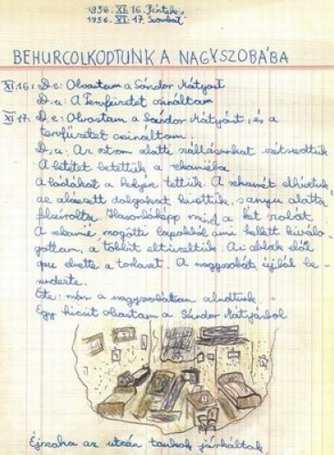 1956. XI. 16. Péntek,
1956. XI. 17. Szombat
BEHURCOLKODTUNK A NAGYSZOBÁBA
XI. 16: De: Olvastam a Sándor Mátyást
D.u: A Tervfüzetet csináltam
XI. 17: D.e: Olvastam a Sándor Mátyást, és a
tervfüzetet csináltam.
D.u. Az ostrom alatti szállásunkat szétszedtük
A betétet betettük a rekamiéba
A ládákat a helyére tettük. A rekamiét elhúztuk,
az alászett dolgokat kivettük, s anyu alatta
felsúrolta. Hasonlóképp mind a két
A rekamié mögötti lapokból ami kellett kiválo-
gattam, a többit eltüzeltük. Az ablak elől
apu elvette a torlaszt. A nagyszobát újból be-
rendezte.
Este: már a nagyszobában aludtunk.
Egy kicsit olvastam a Sándor Mátyásból
Éjszaka az utcán tankok járkáltak.